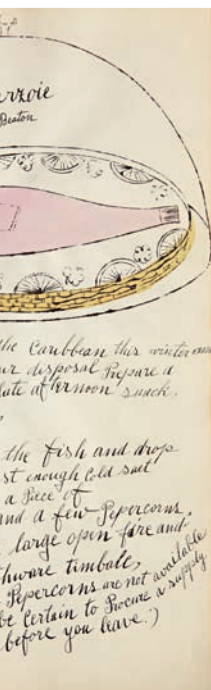 erzoie
Beaton
the Caribbean this winter and
ur disposal Prepare a
late afternoon snack.
the fish and drop
st enough Cold salt
a Piece of
and a few Pepercorns.
large open fire and
thware timbale,
Pepercorns are not available
be Certain to Procure a supply
before you leave.)